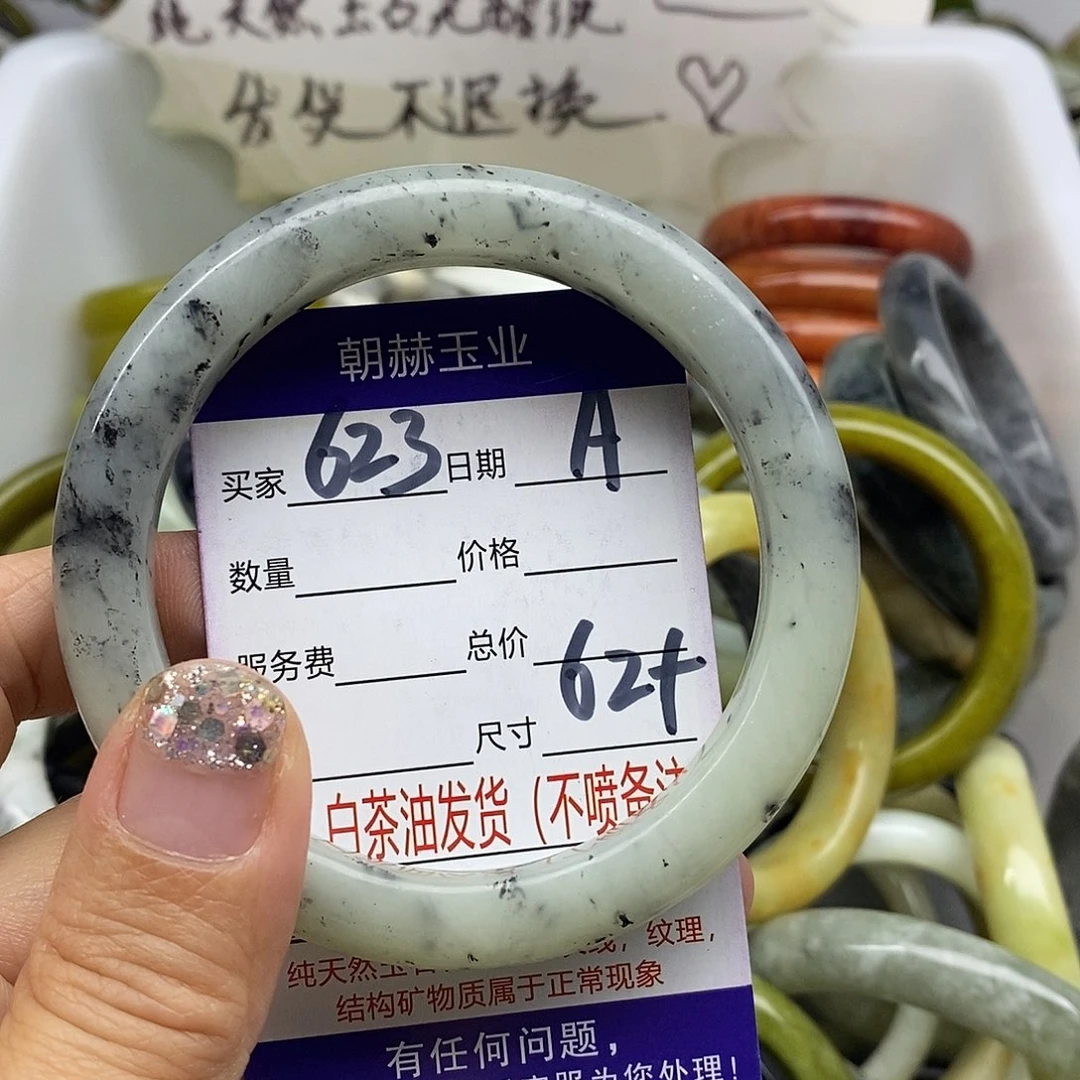 纯天然玉石无醋洗
售出不退换
朝赫玉业
买家 623 日期 A
数量 价格
服务费 总价
尺寸 62+
白茶油发货（不喷备注
纯天然玉石 纹理，
结构矿物质属于正常现象
有任何问题，
服为您处理！